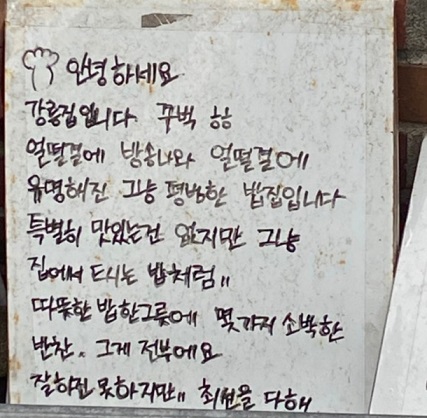 안녕하세요
강릉집입니다. 꾸벅 ㅎㅎ
얼떨결에 방송나와 얼떨결에
유명해진 그냥 평범한 밥집입니다
특별히 맛있는건 없지만 그냥
집에서 드시는 밥처럼"
따뜻한 밥한그릇에 몇가지 소박한
반찬. 그게 전부에요
잘하진 못하지만" 최선을 다해